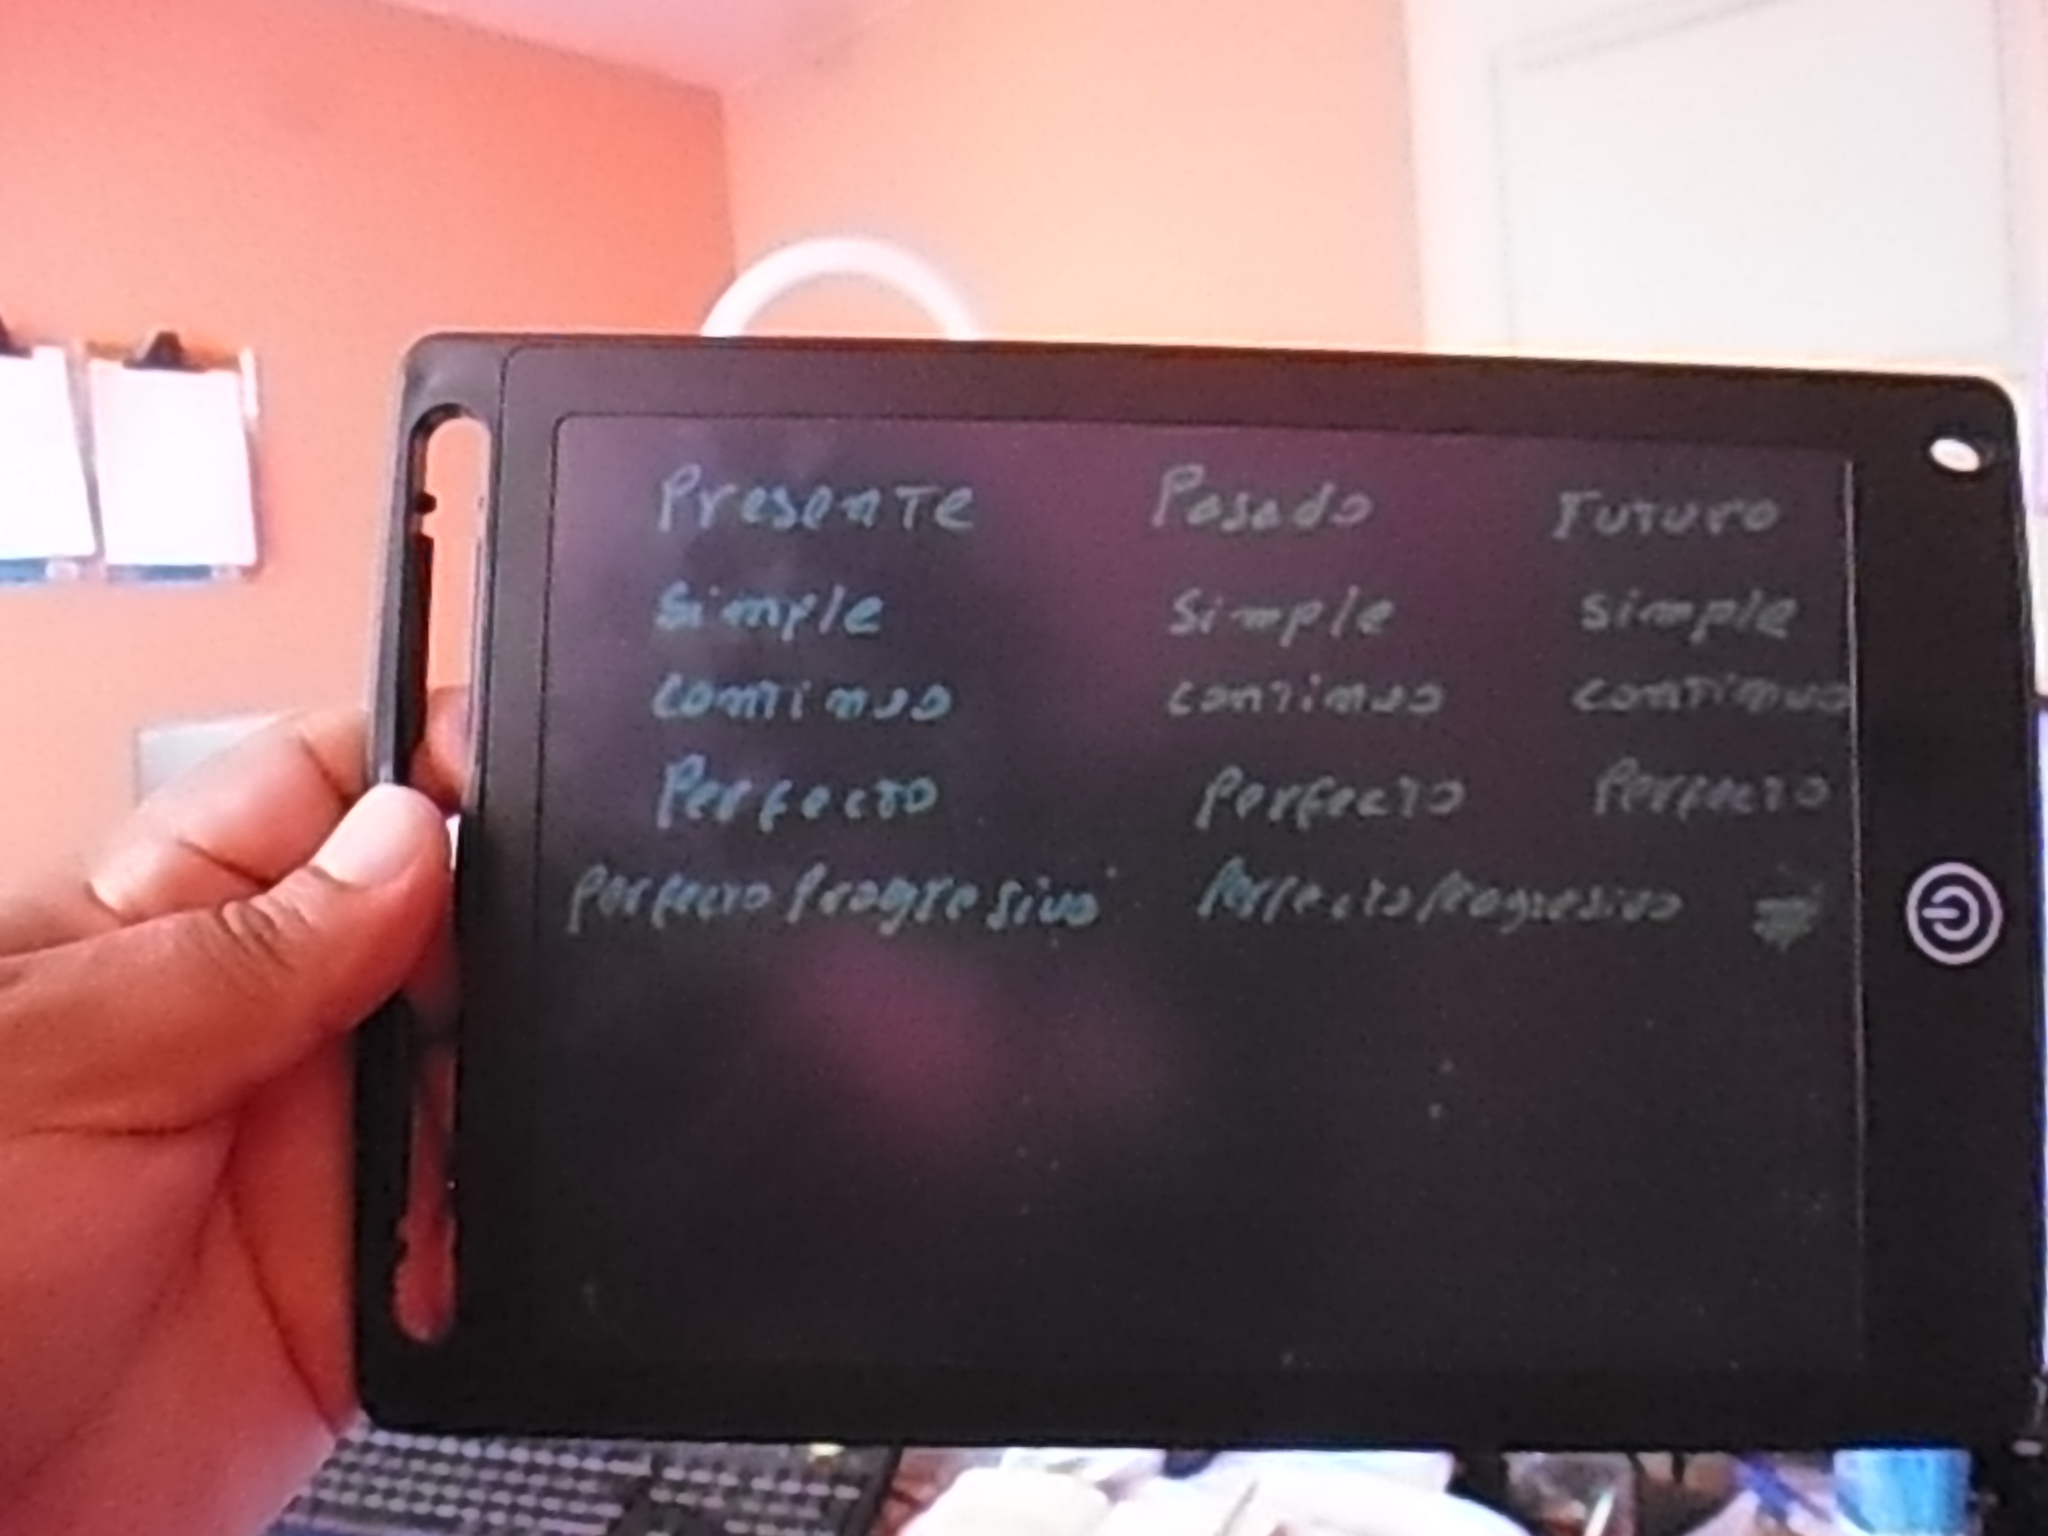 Presente Pasado Futuro
Simple Simple Simple
continuo continuo continuo
Perfecto Perfecto Perfecto
Perfecto Progresivo Perfecto Progresivo